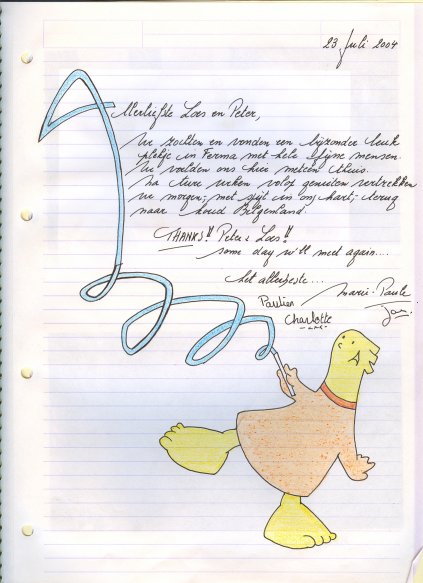 23 Juli 2004
Allerliefste Loes en Peter,
We zochten en vonden een bijzonder leuk
plekje in Ferma met hele fijne mensen.
We voelden ons hier meteen thuis.
Na twee weken volop genieten vertrekken
we morgen, met spijt in ons hart, terug
naar 't koud Belgenland.
THANKS!! Peter & Loes!!
some day we'll meet again...
het allerbeste...
Marie-Paule
Paulien
Jan.
Charlotte